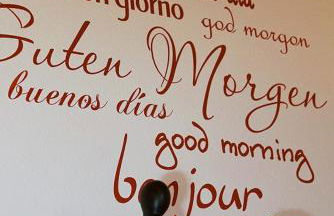 giorno
god morgon
Guten Morgen
buenos días
good morning
bonjour